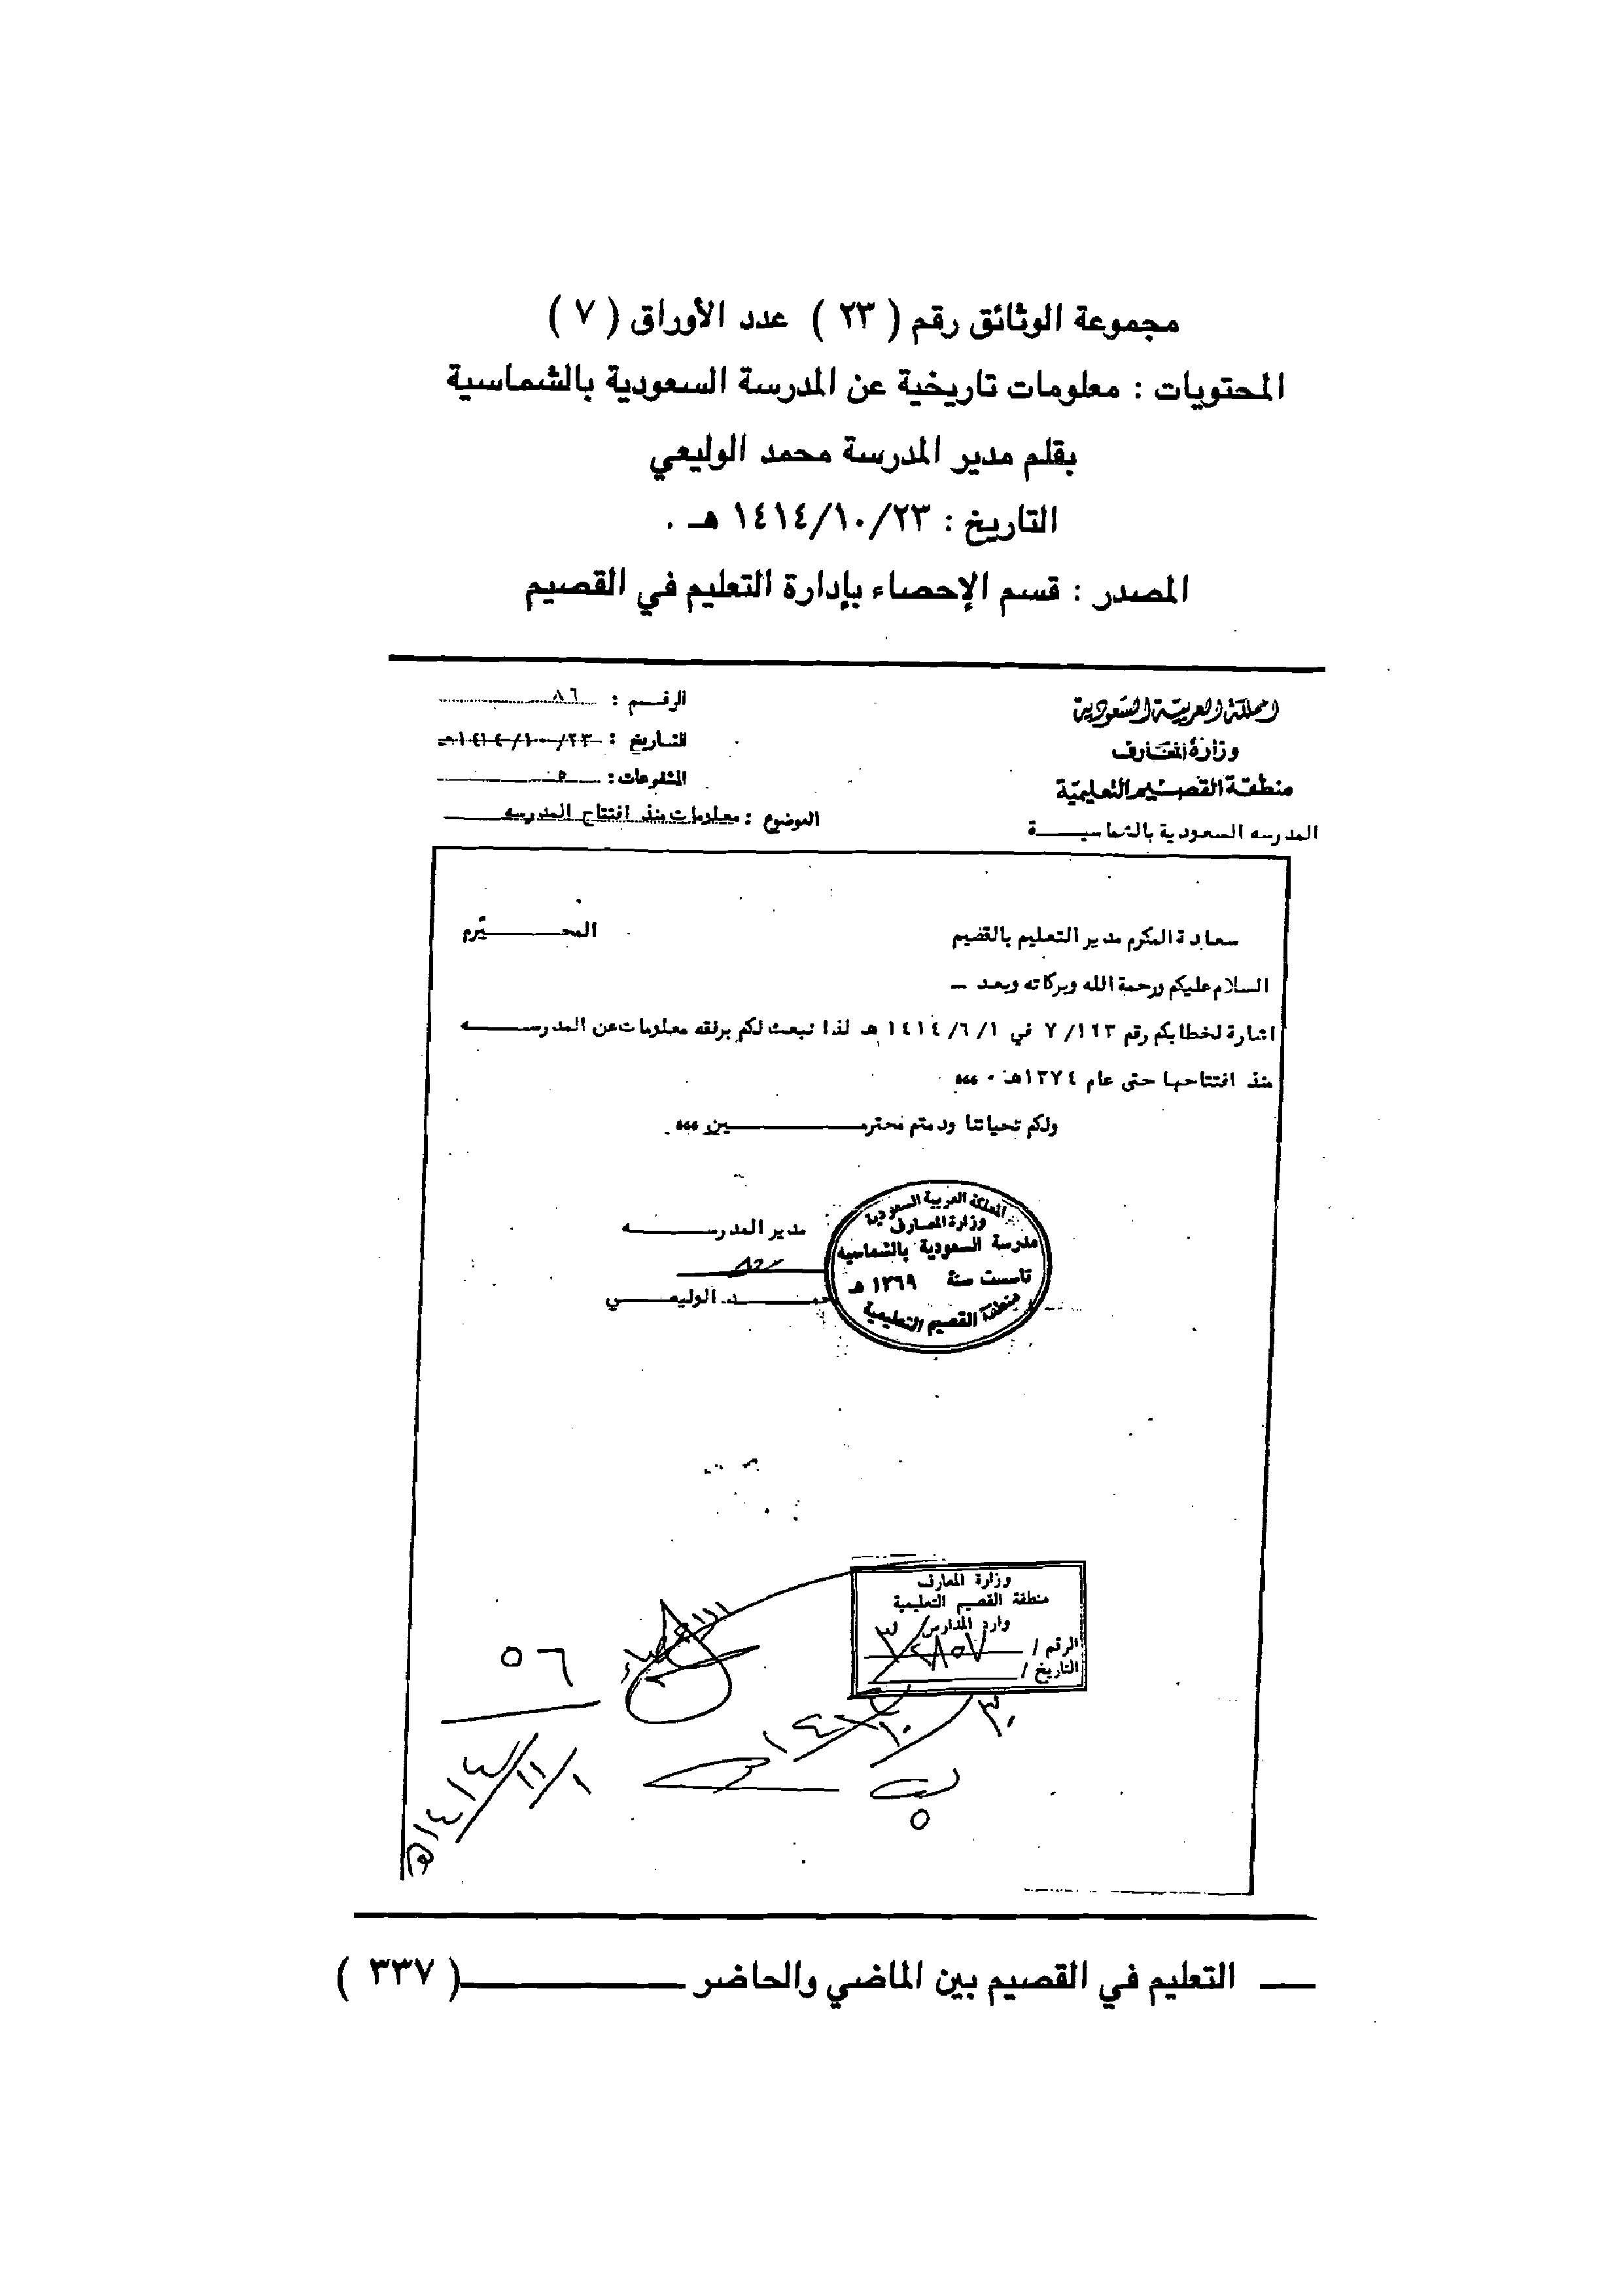 مجموعة الوثائق رقم ( ٢٣ ) عدد الأوراق ( ٧ )
المحتويات : معلومات تاريخية عن المدرسة السعودية بالشماسية
بقلم مدير المدرسة محمد الوليعي
التاريخ : ١٤١٤/١٠/٢٣ هـ .
المصدر : قسم الإحصاء بإدارة التعليم في القصيم
المملكة العربية السعودية
وزارة المعارف
منطقة القصيم التعليمية
المدرسه السعودية بالشماسية
الرقم : ٨٦
التاريخ : ١٤١٤/١٠/٢٣هـ
المشفوعات : ٥
الموضوع : معلومات منذ افتتاح المدرسه
سعادة المكرم مدير التعليم بالقصيم المحترم
السلام عليكم ورحمة الله وبركاته وبعد ـ
اشارة لخطابكم رقم ٧/١٦٣ في ١٤١٤/٦/١ هـ لذا نبعث لكم برفقه معلومات عن المدرسه
منذ افتتاحها حتى عام ١٣٧٤هـ ٠
ولكم تحياتنا ودمتم محترمين
مدير المدرسه
حمد الوليعي
المملكة العربية السعودية
وزارة المعارف
مدرسة السعودية بالشماسيه
تاسست سنة ١٣٦٩ هـ
منطقة القصيم التعليمية
وزارة المعارف
منطقة القصيم التعليمية
وارد المدارس
الرقم / ٣/٢٨٥٧
التاريخ /
٣٠/١٠/١٤
٥٦
١/١١/١٤١٤هـ
التعليم في القصيم بين الماضي والحاضر ( ٣٣٧ )